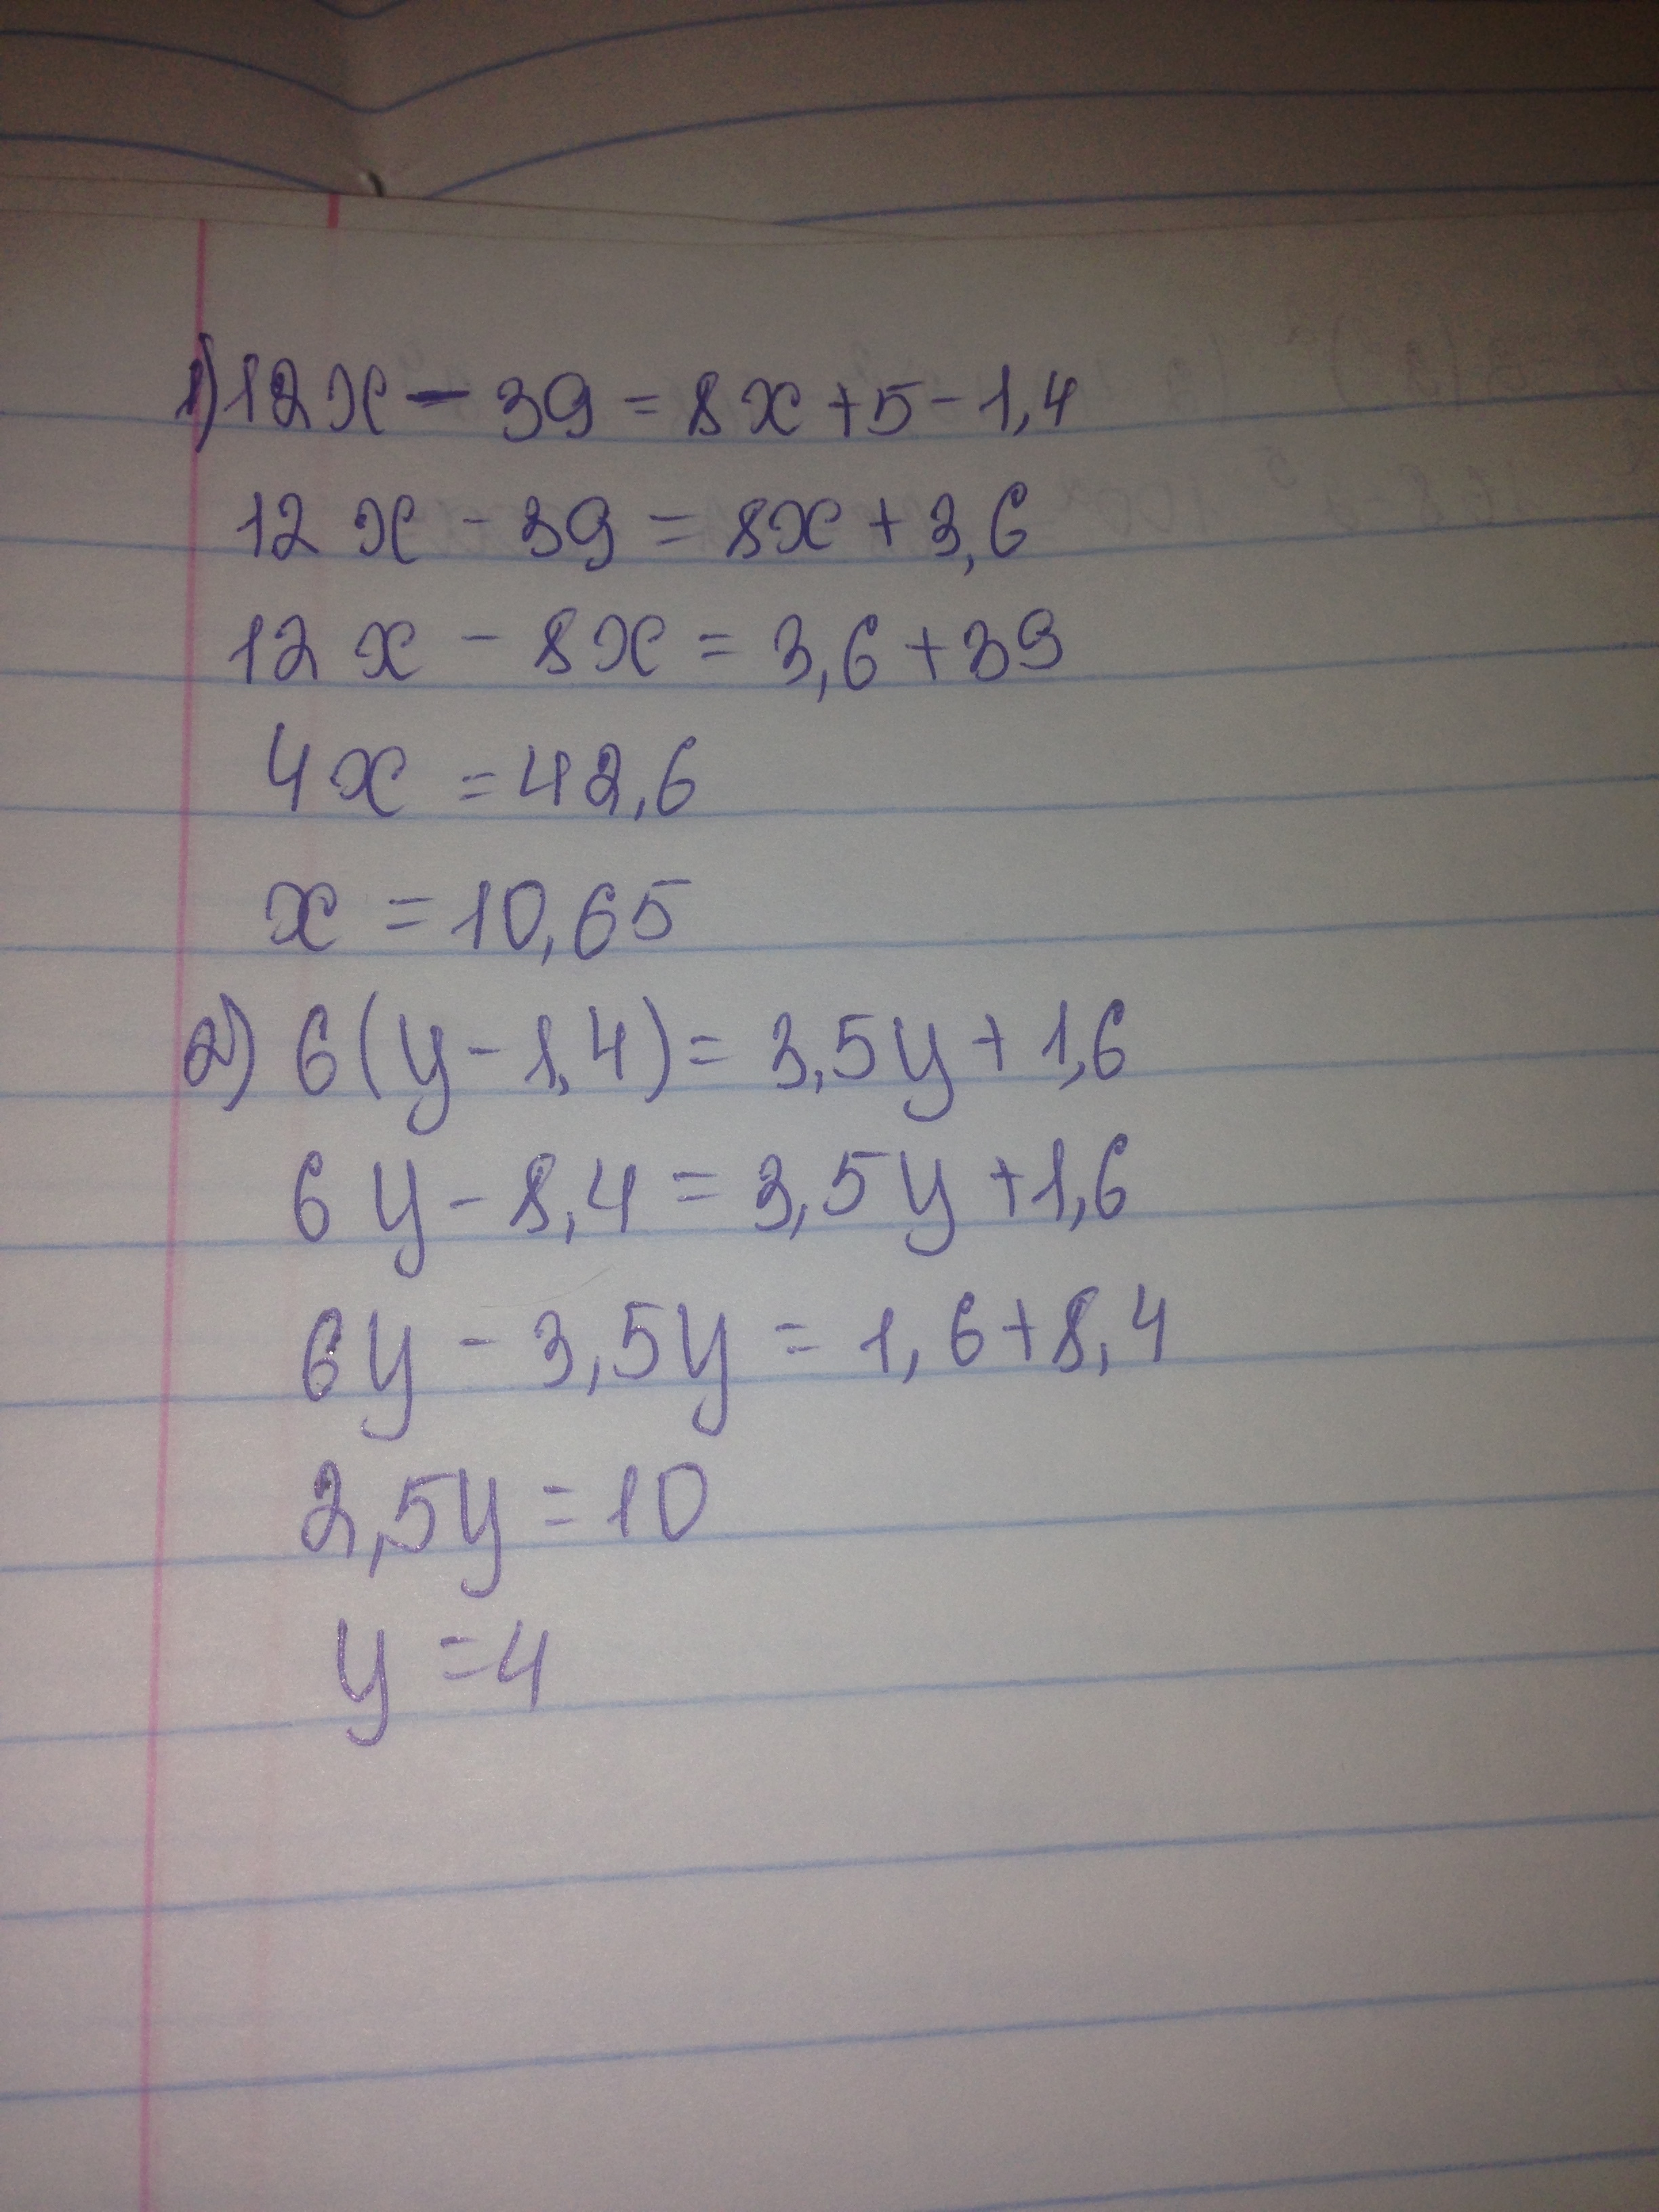 1) 12x - 39 = 8x + 5 - 1,4
12x - 39 = 8x + 3,6
12x - 8x = 3,6 + 39
4x = 42,6
x = 10,65
2) 6(y - 1,4) = 3,5y + 1,6
6y - 8,4 = 3,5y + 1,6
6y - 3,5y = 1,6 + 8,4
2,5y = 10
y = 4